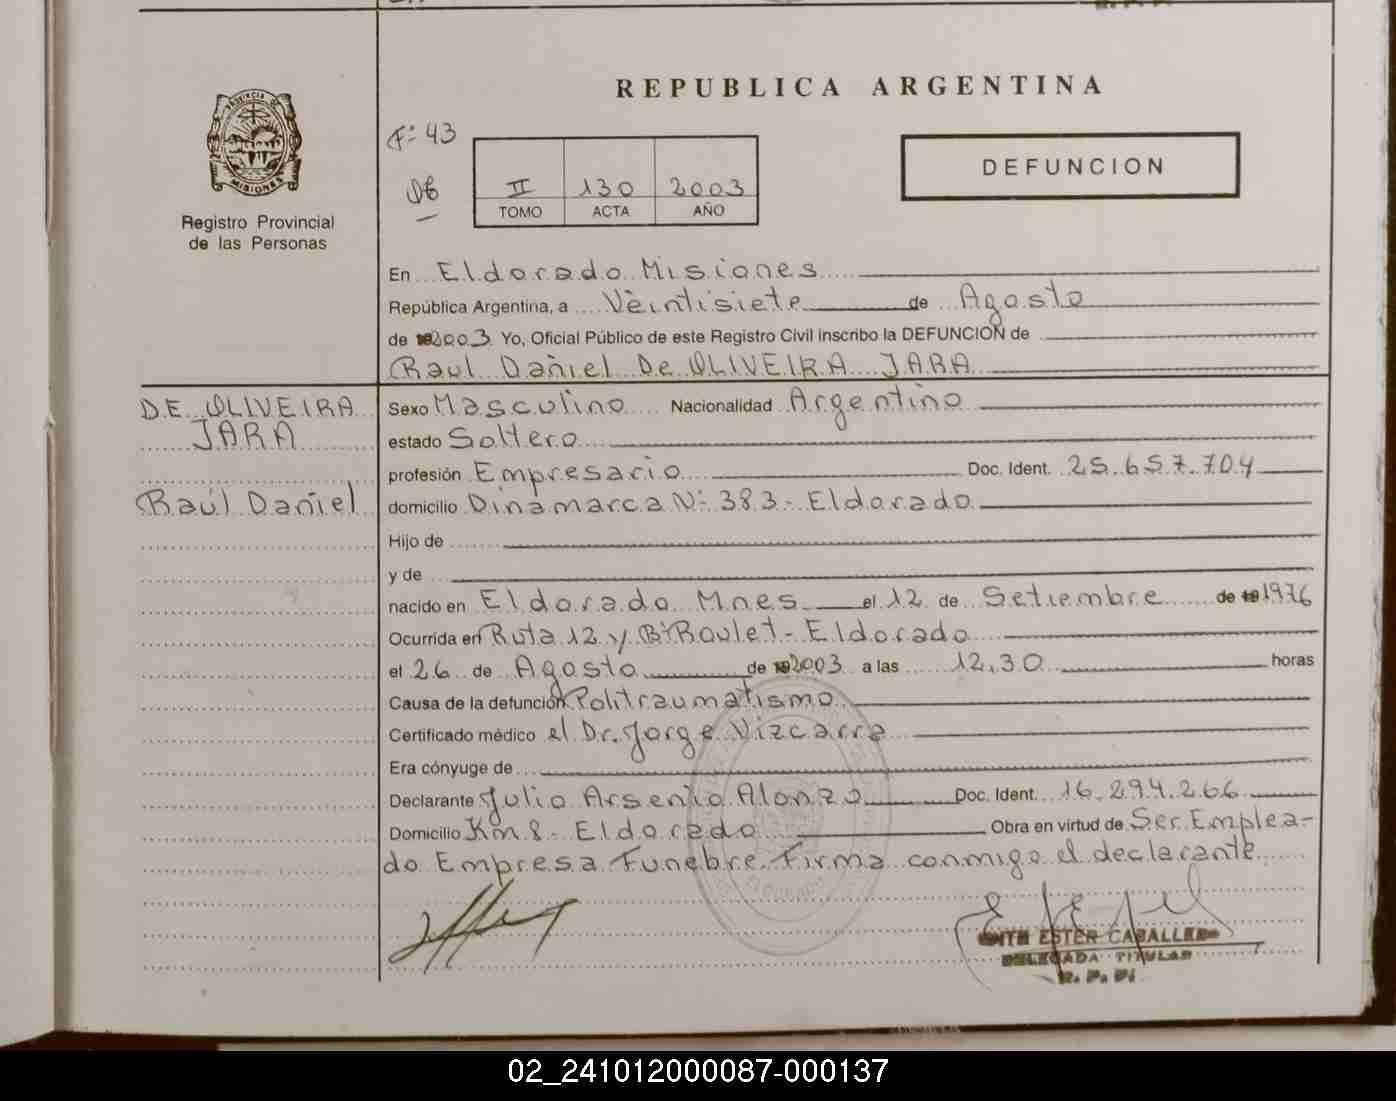 REPUBLICA ARGENTINA
PROVINCIA DE
MISIONES
Registro Provincial
de las Personas
Fº 43
II 130 2003
TOMO ACTA AÑO
DEFUNCION
En Eldorado Misiones
República Argentina, a Veintisiete de Agosto
de 2003 Yo, Oficial Público de este Registro Civil inscribo la DEFUNCION de
Raul Daniel De OLIVEIRA JARA
DE OLIVEIRA
JARA
Raúl Daniel
Sexo Masculino Nacionalidad Argentino
estado Soltero
profesión Empresario Doc. Ident. 25.657.704
domicilio Dinamarca Nº 383- Eldorado
Hijo de
y de
nacido en Eldorado Mnes el 12 de Setiembre de 1976
Ocurrida en Ruta 12 y Bº Roulet- Eldorado
el 26 de Agosto de 2003 a las 12,30 horas
Causa de la defunción Politraumatismo
Certificado médico el Dr. Jorge Vizcarra
Era cónyuge de
Declarante Julio Arsenio Alonzo Doc. Ident. 16.294.266
Domicilio Km 8- Eldorado Obra en virtud de Ser Emplea-
do Empresa Funebre. Firma conmigo el declarante
ESTER CABALLERO
DELEGADA TITULAR
R. P. P.
ELDORADO
02_241012000087-000137